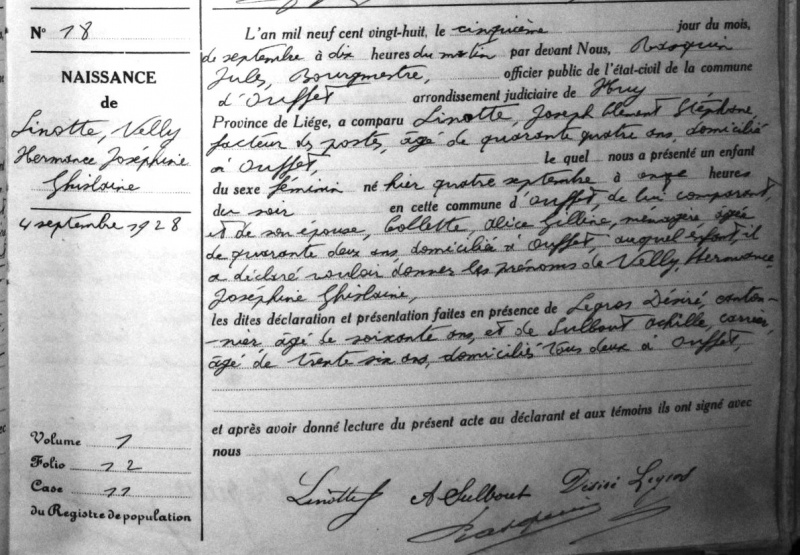 N° 18
NAISSANCE
de
Linotte, Nelly
Hermance Joséphine
Ghislaine
4 septembre 1928
Volume 1
Folio 12
Case 11
du Registre de population
L'an mil neuf cent vingt-huit, le cinquième jour du mois,
de septembre à dix heures du matin par devant Nous,
Jules, Bourgmestre, officier public de l'état-civil de la commune
d'Ouffet arrondissement judiciaire de Huy
Province de Liége, a comparu Linotte, Joseph Clément Stéphane
facteur des postes, âgé de quarante quatre ans, domicilié
à Ouffet, le quel nous a présenté un enfant
du sexe féminin né hier quatre septembre à onze heures
du soir en cette commune d'Ouffet, de lui comparant,
et de son épouse, Collette, Alice Gilline, ménagère âgée
de quarante deux ans, domicilié à Ouffet auquel enfant, il
a déclaré vouloir donner les prénoms de Nelly, Hermance
Joséphine Ghislaine,
les dites déclaration et présentation faites en présence de Legros Désiré, canton-
nier âgé de soixante ans, et de Sulbout Achille, carrier
âgé de trente six ans, domiciliés tous deux à Ouffet,
et après avoir donné lecture du présent acte au déclarant et aux témoins ils ont signé avec
nous
Linotte J A Sulbout Désiré Legros